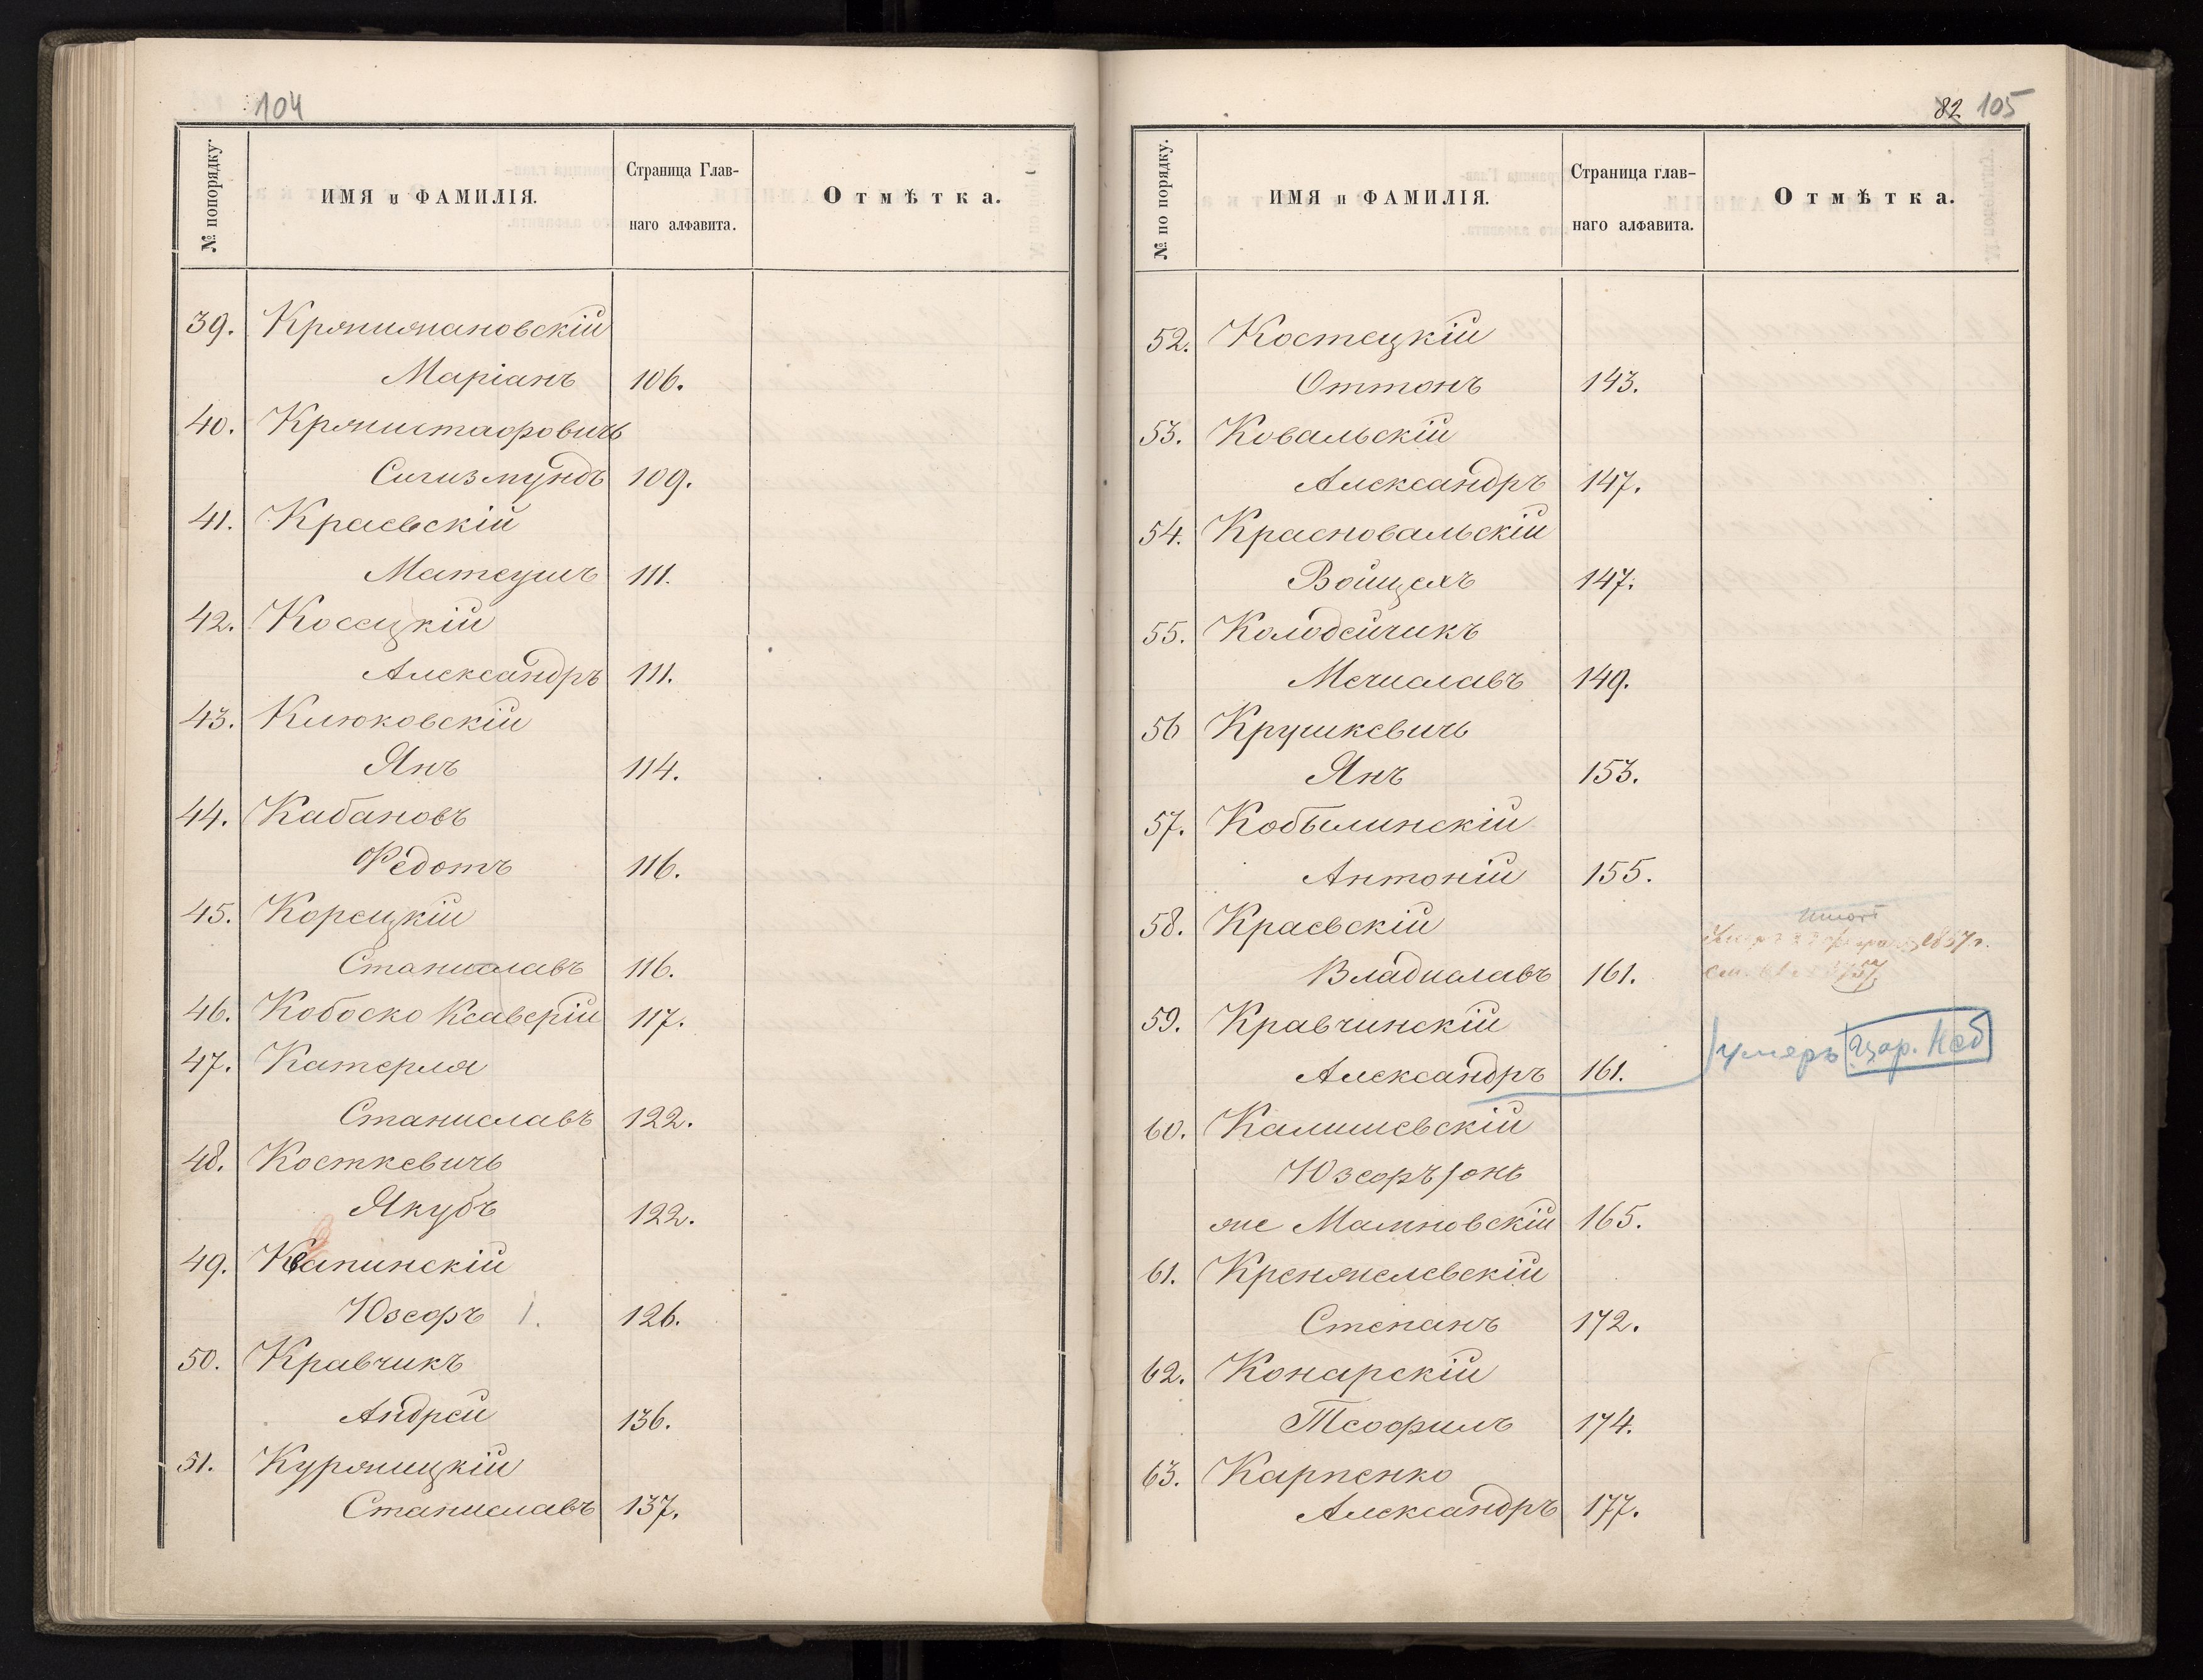 104
№ попорядку.
ИМЯ и ФАМИЛІЯ.
Страница Глав-
наго алфавита.
Отмѣтка.
39. Кржижановскій
Маріанъ 106.
40. Кржиштафовичъ
Сигизмундъ 109.
41. Краевскій
Матеушъ 111.
42. Коссецкій
Александръ 111.
43. Клюковскій
Янъ 114.
44. Кабановъ
Федотъ 116.
45. Корецкій
Станиславъ 116.
46. Кобоско Ксаверій 117.
47. Катерля
Станиславъ 122.
48. Косткевичъ
Якубъ 122.
49. Квапинскій
Юзефъ 126.
50. Кравчикъ
Андрей 136.
51. Куржицкій
Станиславъ 137.
82 105
№ по порядку.
ИМЯ и ФАМИЛІЯ.
Страница глав-
наго алфавита.
Отмѣтка.
52. Костецкій
Оттонъ 143.
53. Ковальскій
Александръ 147.
54. Красновальскій
Войцехъ 147.
55. Колодейчикъ
Мечиславъ 149.
56 Крушкевичъ
Янъ 153.
57. Кобылинскій
Антоній 155.
58. Краевскій
Владиславъ 161.
59. Кравчинскій
Александръ 161. умеръ Цар. Неб
60. Калишевскій
Юзефъ /онъ
же Малиновскій 165.
61. Кренжелевскій
Степанъ 172.
62. Конарскій
Теофиль 174.
63. Карпенко
Александръ 177.